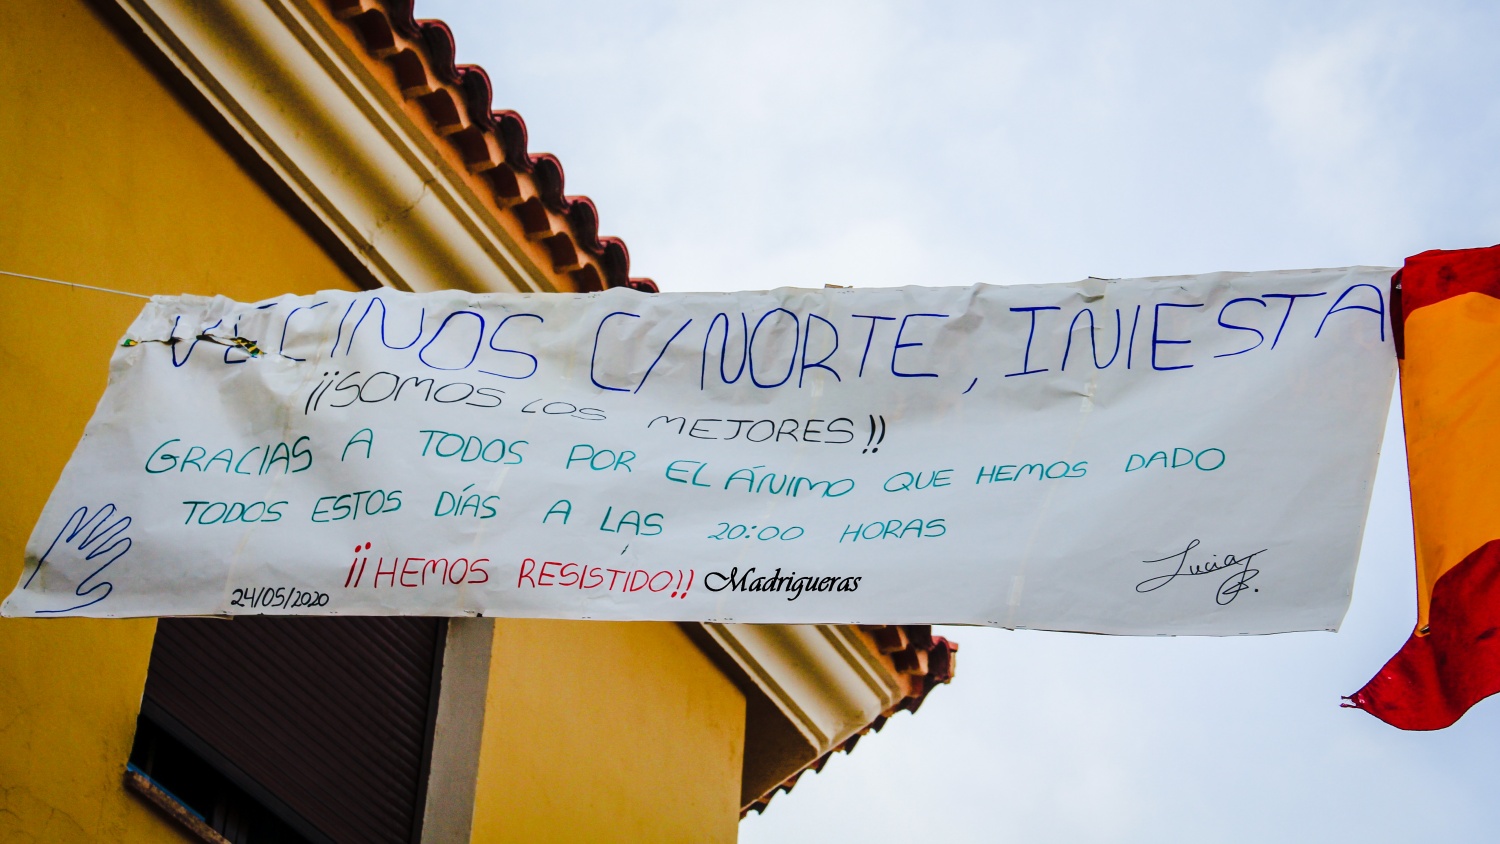 VECINOS C/NORTE, INIESTA
¡¡SOMOS LOS MEJORES!!
GRACIAS A TODOS POR EL ÁNIMO QUE HEMOS DADO
TODOS ESTOS DÍAS A LAS 20:00 HORAS
¡¡HEMOS RESISTIDO!! Madrigueras
24/05/2020
Lucia